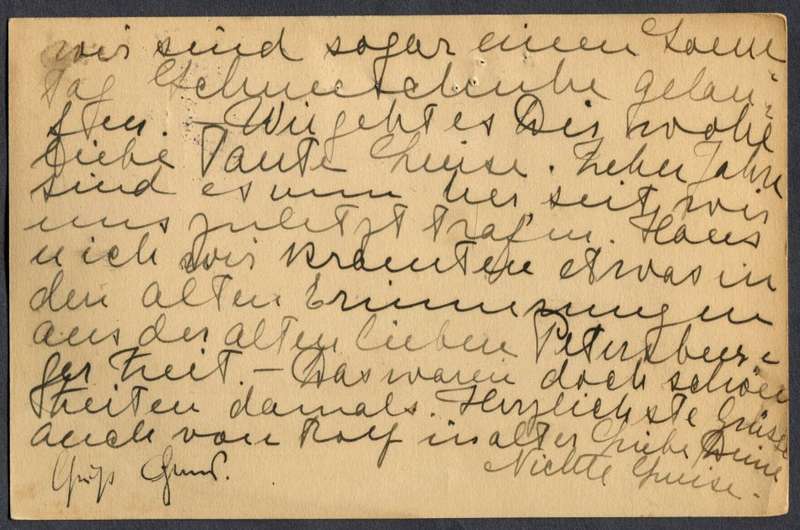 wir sind sogar einen Sonn
tag Schneeschuhe gelau-
fen. - Wie geht es Dir wohl
Liebe Tante Luise. Zehn Jahre
sind es nun her seit wir
uns zuletzt trafen. Hans
u ich wir kramten etwas in
den alten Erinnerungen
aus der alten lieben Petersbur-
ger Zeit. - Das waren doch schöne
Zeiten damals. Herzlichste Grüsse
auch von Rolf in alter Liebe Deine
Nichte Luise.
Gruß